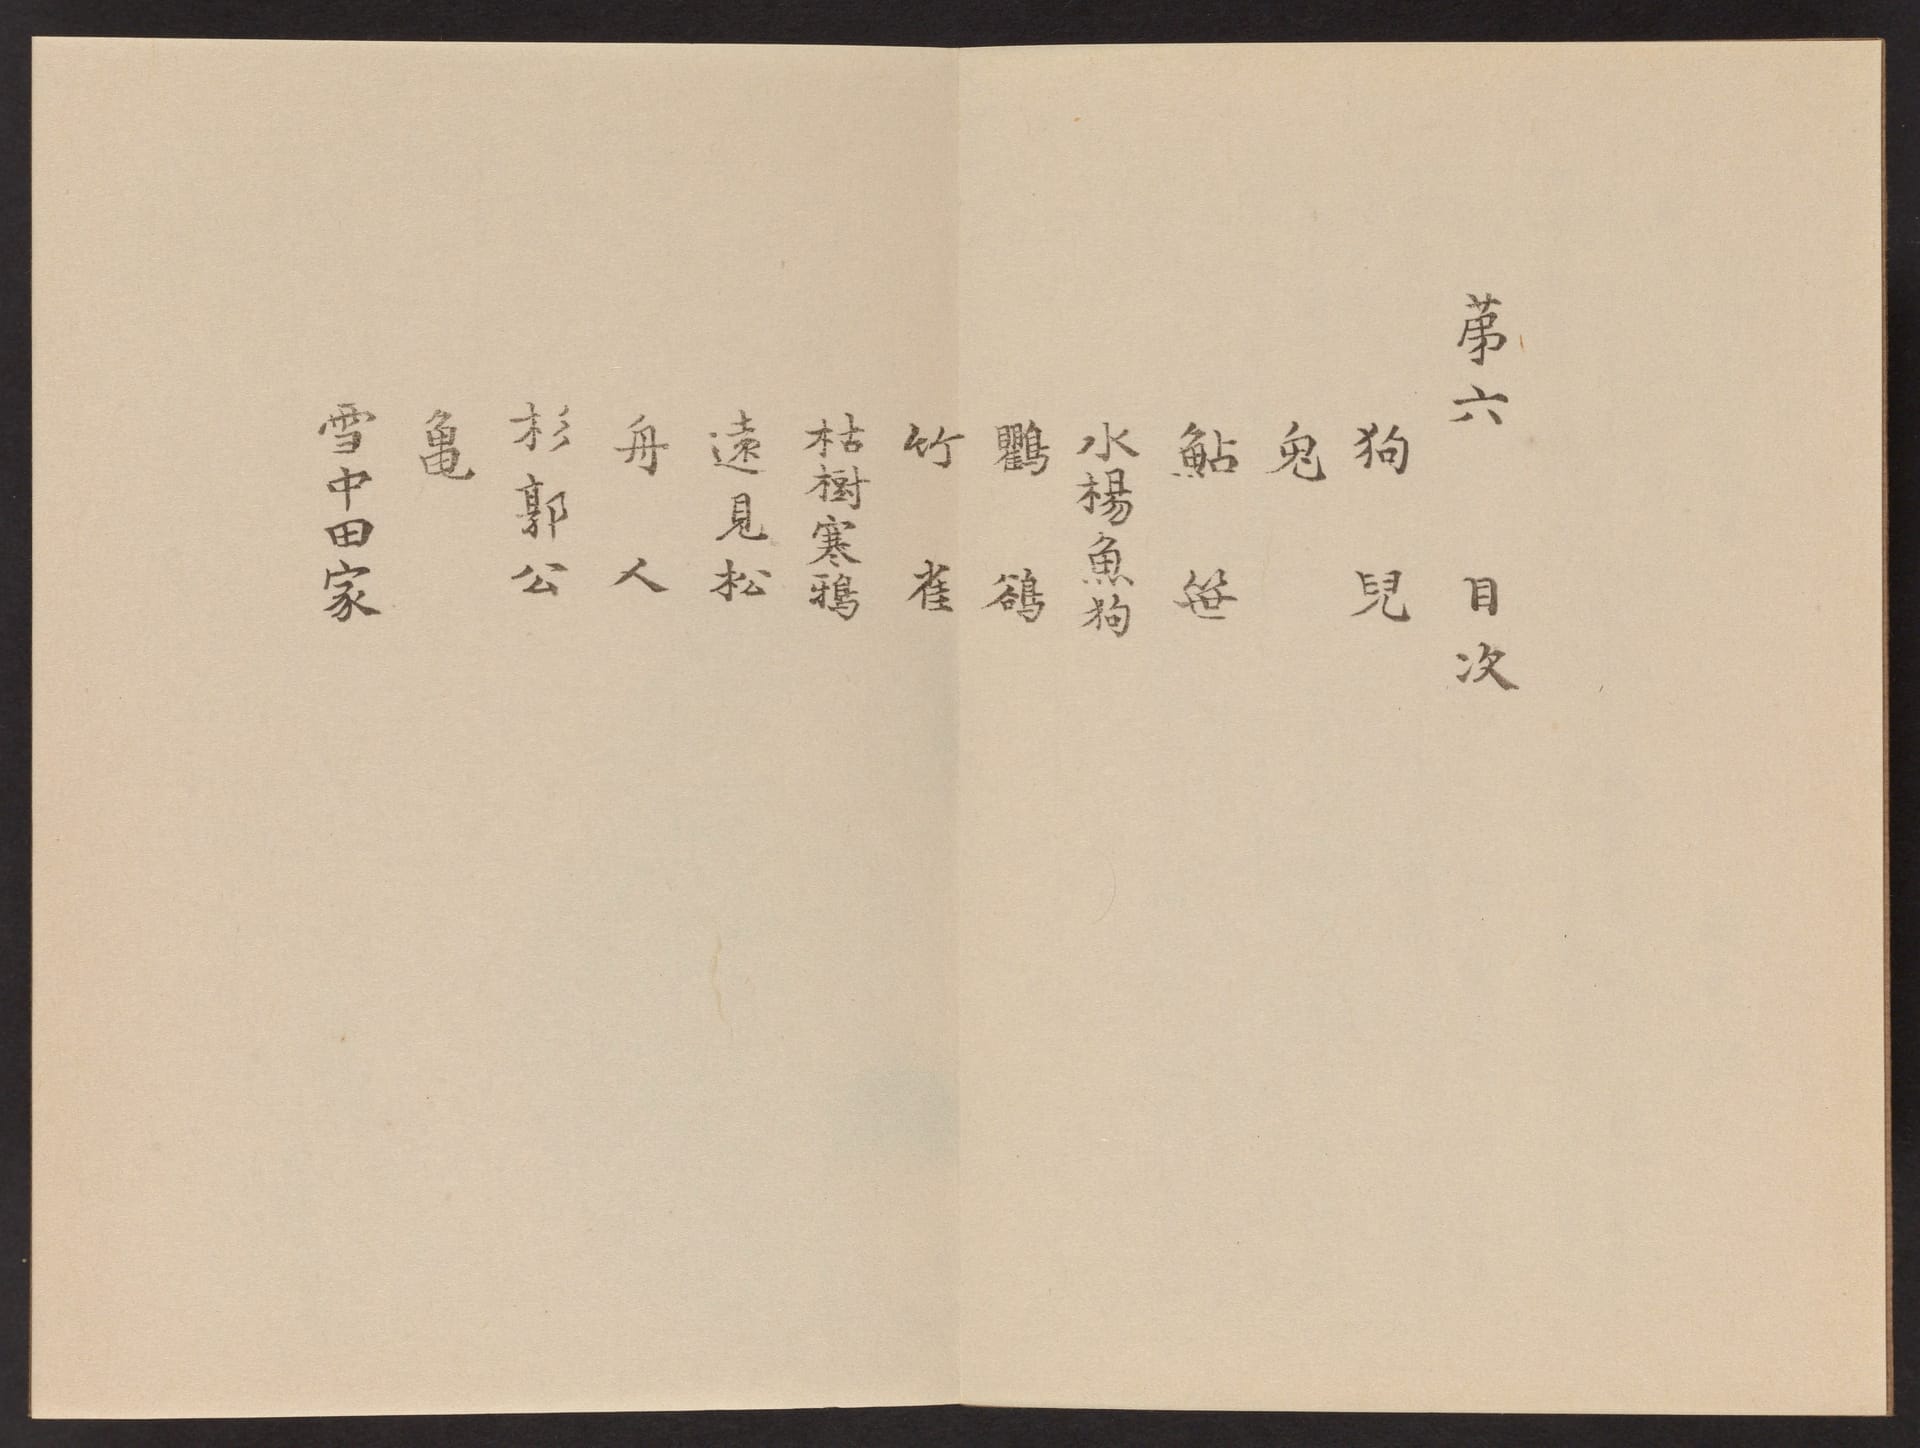 苐六 目次
狗兒
兔
鮎笹
水楊魚狗
鸜鵒
竹雀
枯樹寒鴉
遠見松
舟人
杉郭公
亀
雪中田家